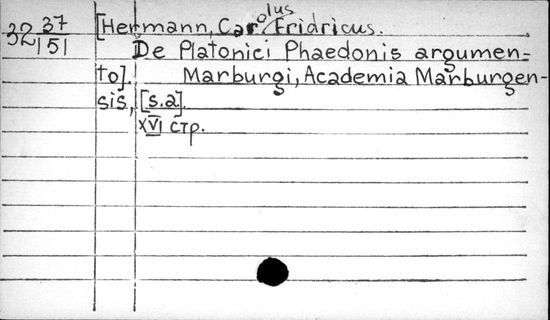 32 37/151
[Hermann, Carolus Fridricus.
De Platonici Phaedonis argumen=
to]. Marburgi, Academia Marburgen-
sis, [s.a].
XVI стр.